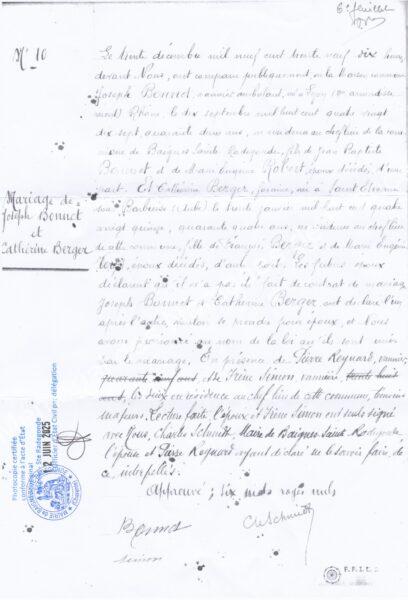 6e feuillet
No 10
Mariage de
Joseph Bonnot
et
Catherine Berger
Le trente décembre mil neuf cent trente neuf dix heures
devant Nous, ont comparu publiquement en la Maison commune
Joseph Bonnot, vannier ambulant, né à Lyon
Rhône, le dix septembre mil huit cent quatre vingt
dix sept, quarante deux ans, en résidence au chef lieu de la com-
mune de Baignes Sainte Radegonde, fils de Jean Baptiste
Bonnot et de Marie Robert, époux décédés, d'une
part. Et Catherine Berger, foraine, née à Saint Etienne
sous Barbuise (Aube) le trente janvier mil huit cent quatre
vingt quinze, quarante quatre ans, en résidence au chef lieu
de cette commune, fille de François Berger et de Marie Eugénie
époux décédés, d'autre part. Les futurs époux
déclarent qu'il n'a pas été fait de contrat de mariage
Joseph Bonnot et Catherine Berger ont déclaré l'un
après l'autre vouloir se prendre pour époux, et Nous
avons prononcé au nom de la loi qu'ils sont unis
par le mariage. En présence de Pierre Reynard, vannier,
quarante cinq ans, et de Irène Simon, vannière trente huit
ans, tous deux en résidence au chef lieu de cette commune, témoins
majeurs. Lecture faite l'époux et Irène Simon ont seuls signé
avec Nous, Charles Schmitt, Maire de Baignes Sainte Radegonde,
l'épouse et Pierre Reynard ayant déclaré ne le savoir faire, de
ce interpellés.
Approuvé ; six mots rayés nuls
Bonnot
Ch Schmitt
Simon
Photocopie certifiée
conforme à l'acte d'État
12 JUIN 2025
L'officier d'état Civil par délégation